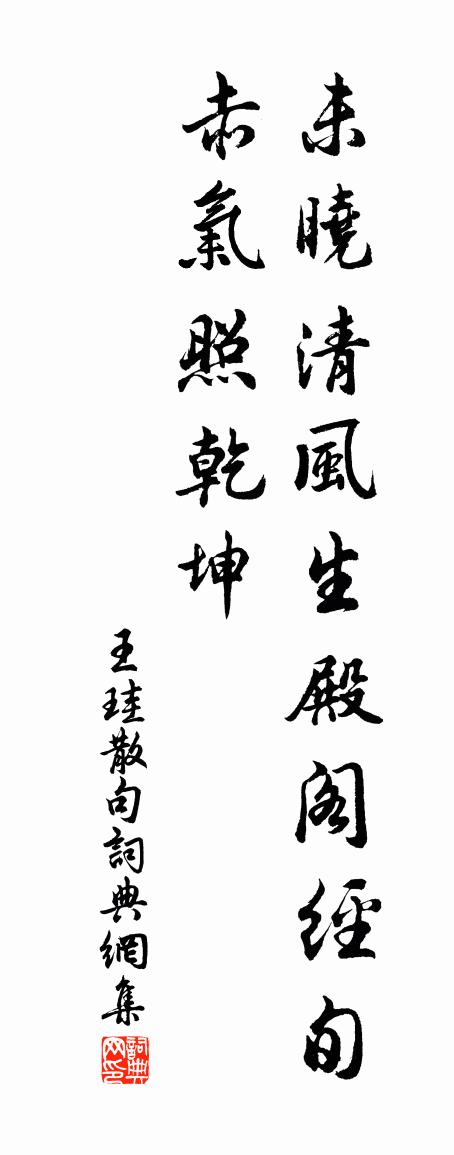 未曉清風生殿閣經旬
赤氣照乾坤
王珪散句詞典網集
詞典网印